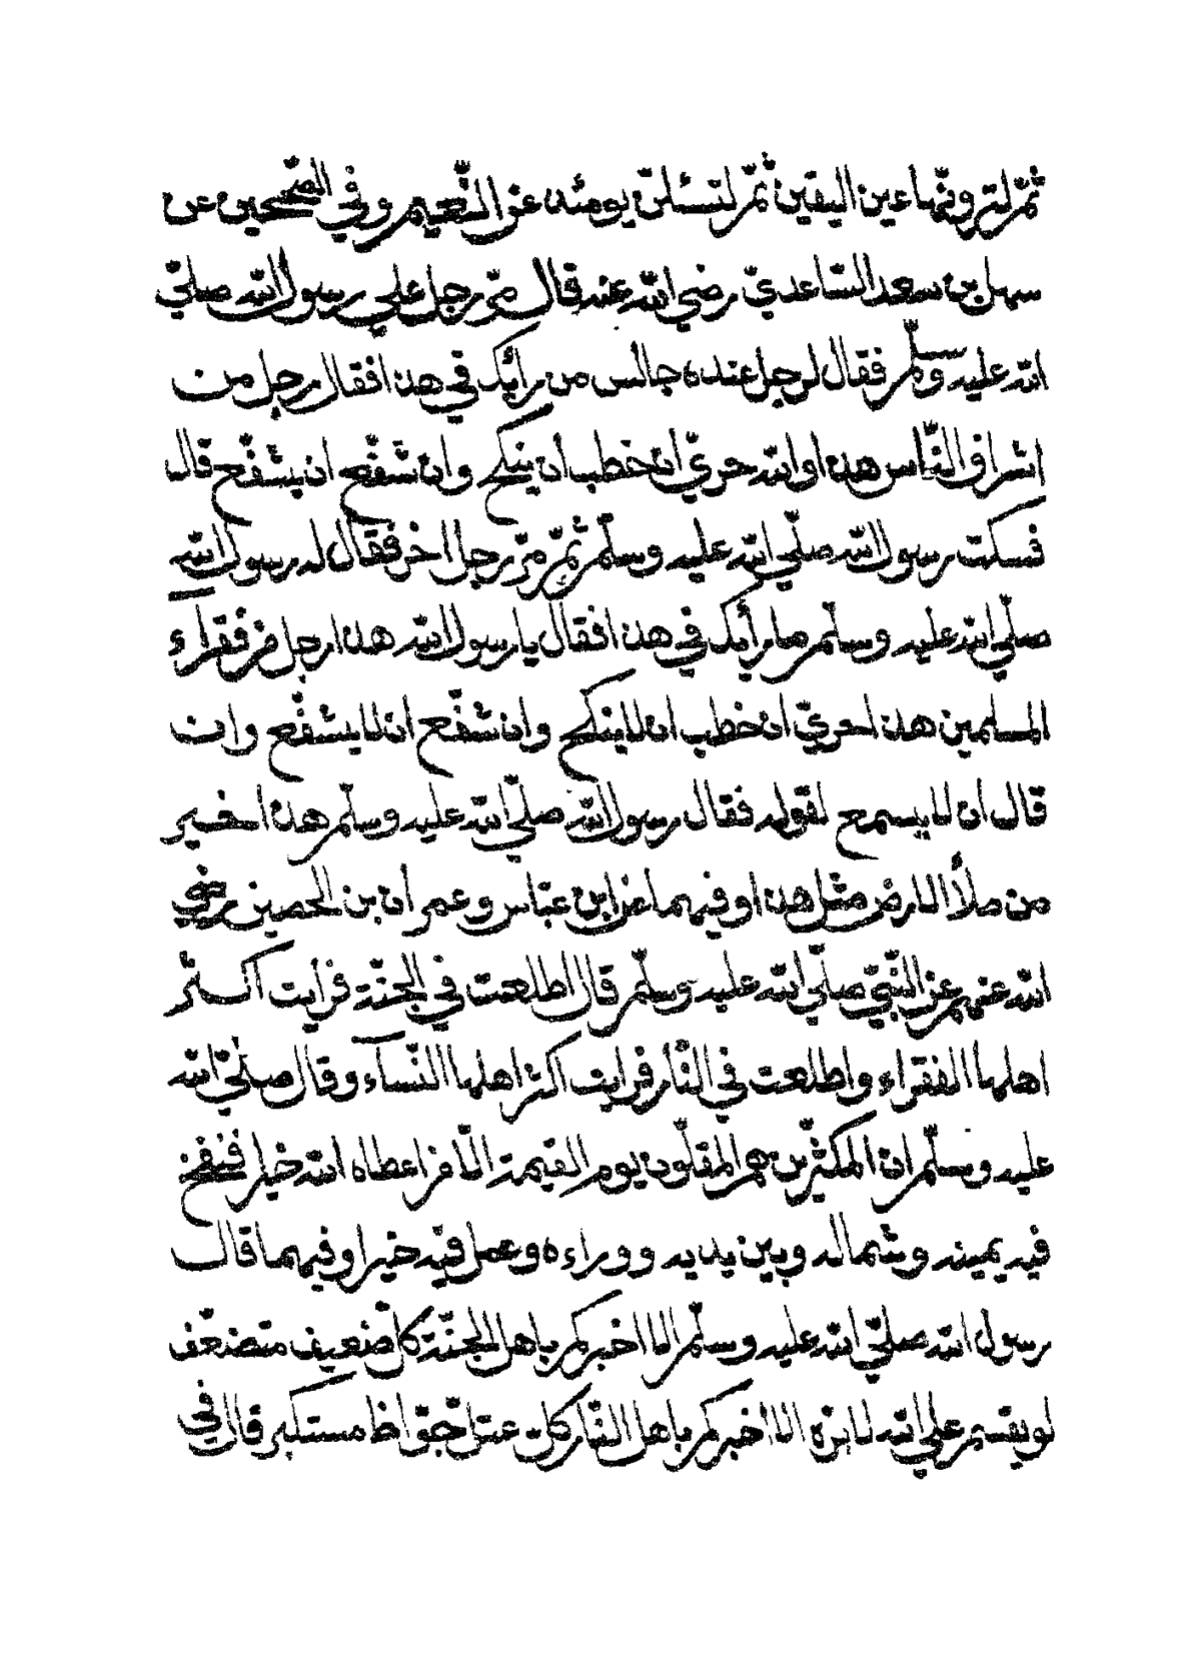 ثمّ لترونّها عين اليقين ثمّ لتسئلنّ يومئذ عن النّعيم وفي الصّحيحين عن
سهل بن سعد السّاعديّ رضي الله عنه قال مرّ رجل علي رسول الله صلّي
الله عليه وسلّم فقال لرجل عنده جالس من رأيك في هذا فقال رجل من
اشراف النّاس هذا والله حريّ أن خطب أن ينكح وان شفّع ان يشفّع قال
فسكت رسول الله صلّي الله عليه وسلّم ثمّ مرّ رجل اخر فقال له رسول الله
صلّي الله عليه وسلّم ما رأيك في هذا فقال يا رسول الله هذا رجل من فقراء
المسلمين هذا حريّ ان خطب ان لا ينكح وان شفّع ان لا يشفّع وان
قال ان لا يسمع لقوله فقال رسول الله صلّي الله عليه وسلّم هذا خير
من ملأ الارض مثل هذا وفيهما عن ابن عبّاس وعمران بن الحصين رضي
الله عنهم عن النّبيّ صلّي الله عليه وسلّم قال اطلعت في الجنّة فرأيت اكثر
اهلها الفقراء واطلعت في النّار فرايت اكثر اهلها النّسآء وقال صلّي الله
عليه وسلّم ان المكثرين هم المقلّون يوم القيمة الّا من اعطاه الله خيرا فنفخ
فيه يمينه وشماله وبين يديه ووراءه وعمل فيه خيرا وفيهما قال
رسول الله صلّي الله عليه وسلّم الا اخبركم باهل الجنّة كلّ ضعيف متضعّف
لو يقسم علي الله لابرّه الا اخبركم باهل النّار كلّ عتلّ جوّاظ مستكبر قال في